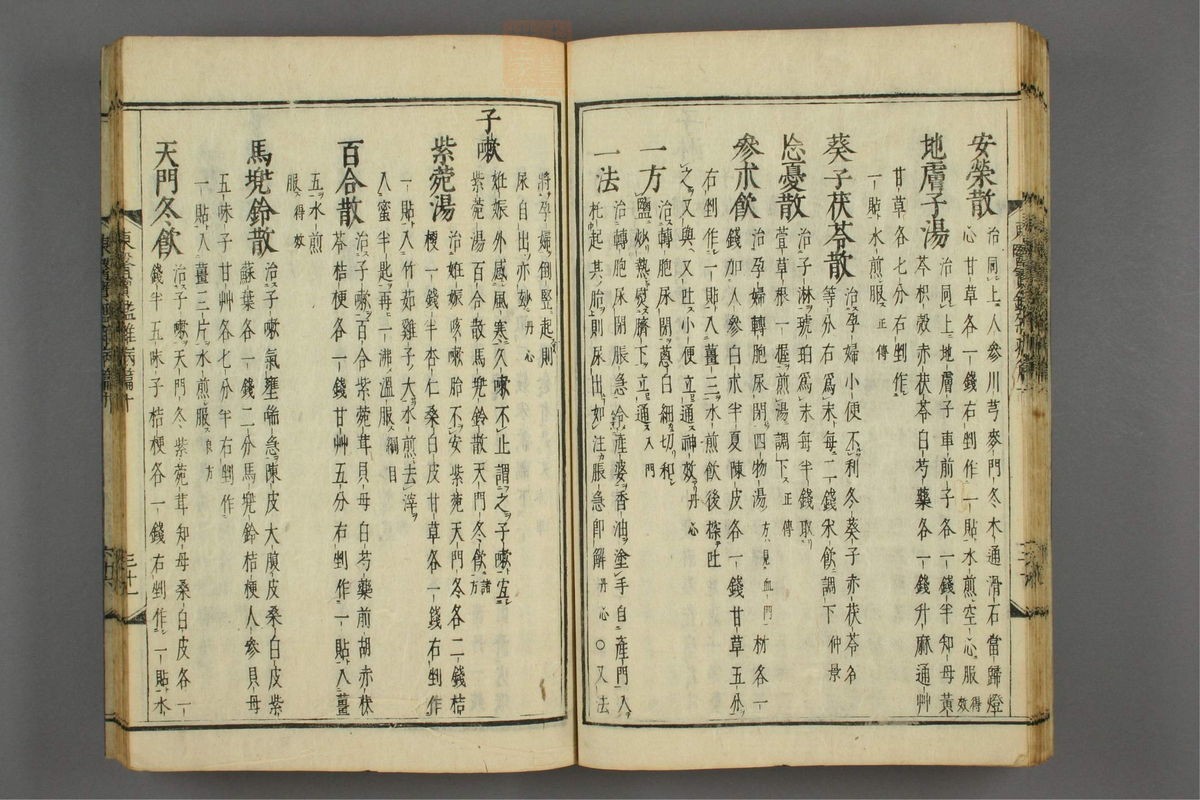 安榮散治同上人參川芎麥門冬木通滑石當歸燈
心甘草各一錢右剉作一貼水煎空心服得效
地膚子湯治同上地膚子車前子各一錢半知母黃
芩枳殼赤茯苓白芍藥各一錢升麻通艸
甘草各七分右剉作
一貼水煎服正傳
葵子茯苓散治孕婦小便不利冬葵子赤茯苓各
等分右爲末每二錢米飮調下仲景
忘憂散治子淋琥珀爲末每半錢取
萱草根一握煎湯調下正傳
參朮飮治孕婦轉胞尿閉四物湯方見血門材各一
錢加人參白朮半夏陳皮各一錢甘草五分
右剉作一貼入薑三水煎飮後探吐
之又與又吐小便立通神效丹心
一方治轉胞尿閉葱白細切和
鹽炒熱熨臍下立通入門
一法治轉胞尿閉脹急令產婆香油塗手自產門入
托起其胞則尿出如注脹急卽解丹心○又法
將孕婦倒竪起則
尿自出亦妙丹心
子嗽妊娠外感風寒久嗽不止謂之子嗽宜
紫菀湯百合散馬兜鈴散天門冬飮諸方
紫菀湯治妊娠咳嗽胎不安紫菀天門冬各二錢桔
梗一錢半杏仁桑白皮甘草各一錢右剉作
一貼入竹茹雞子大水煎去滓
入蜜半匙再一沸溫服綱目
百合散治子嗽百合紫菀茸貝母白芍藥前胡赤茯
苓桔梗各一錢甘艸五分右剉作一貼入薑
五水煎
服得效
馬兜鈴散治子嗽氣壅喘急陳皮大腹皮桑白皮紫
蘇葉各一錢二分馬兜鈴桔梗人參貝母
五味子甘艸各七分半右剉作
一貼入薑三片水煎服良方
天門冬飮治子嗽天門冬紫菀茸知母桑白皮各一
錢半五味子桔梗各一錢右剉作一貼水